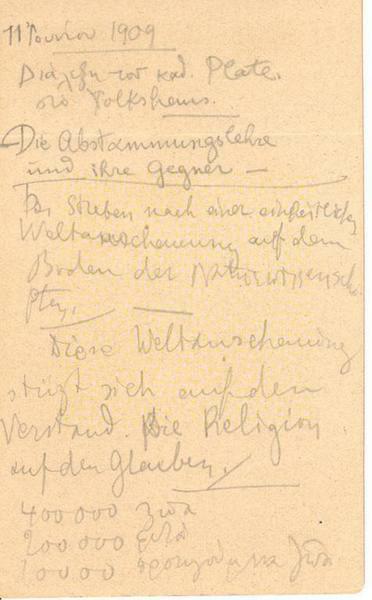 11 Ιουνίου 1909
Διάλεξη του καθ. Plate.
στο Volkshaus.
Die Abstammungslehre
und ihre Gegner —
Das Streben nach einer einheitlichen
Weltanschauung auf dem
Boden der Naturwissenscha
ften.
Diese Weltanschauung
stützt sich auf den
Verstand. Die Religion
auf den Glauben.
400000 ζώα
200000 φυτά
10000 ζώα